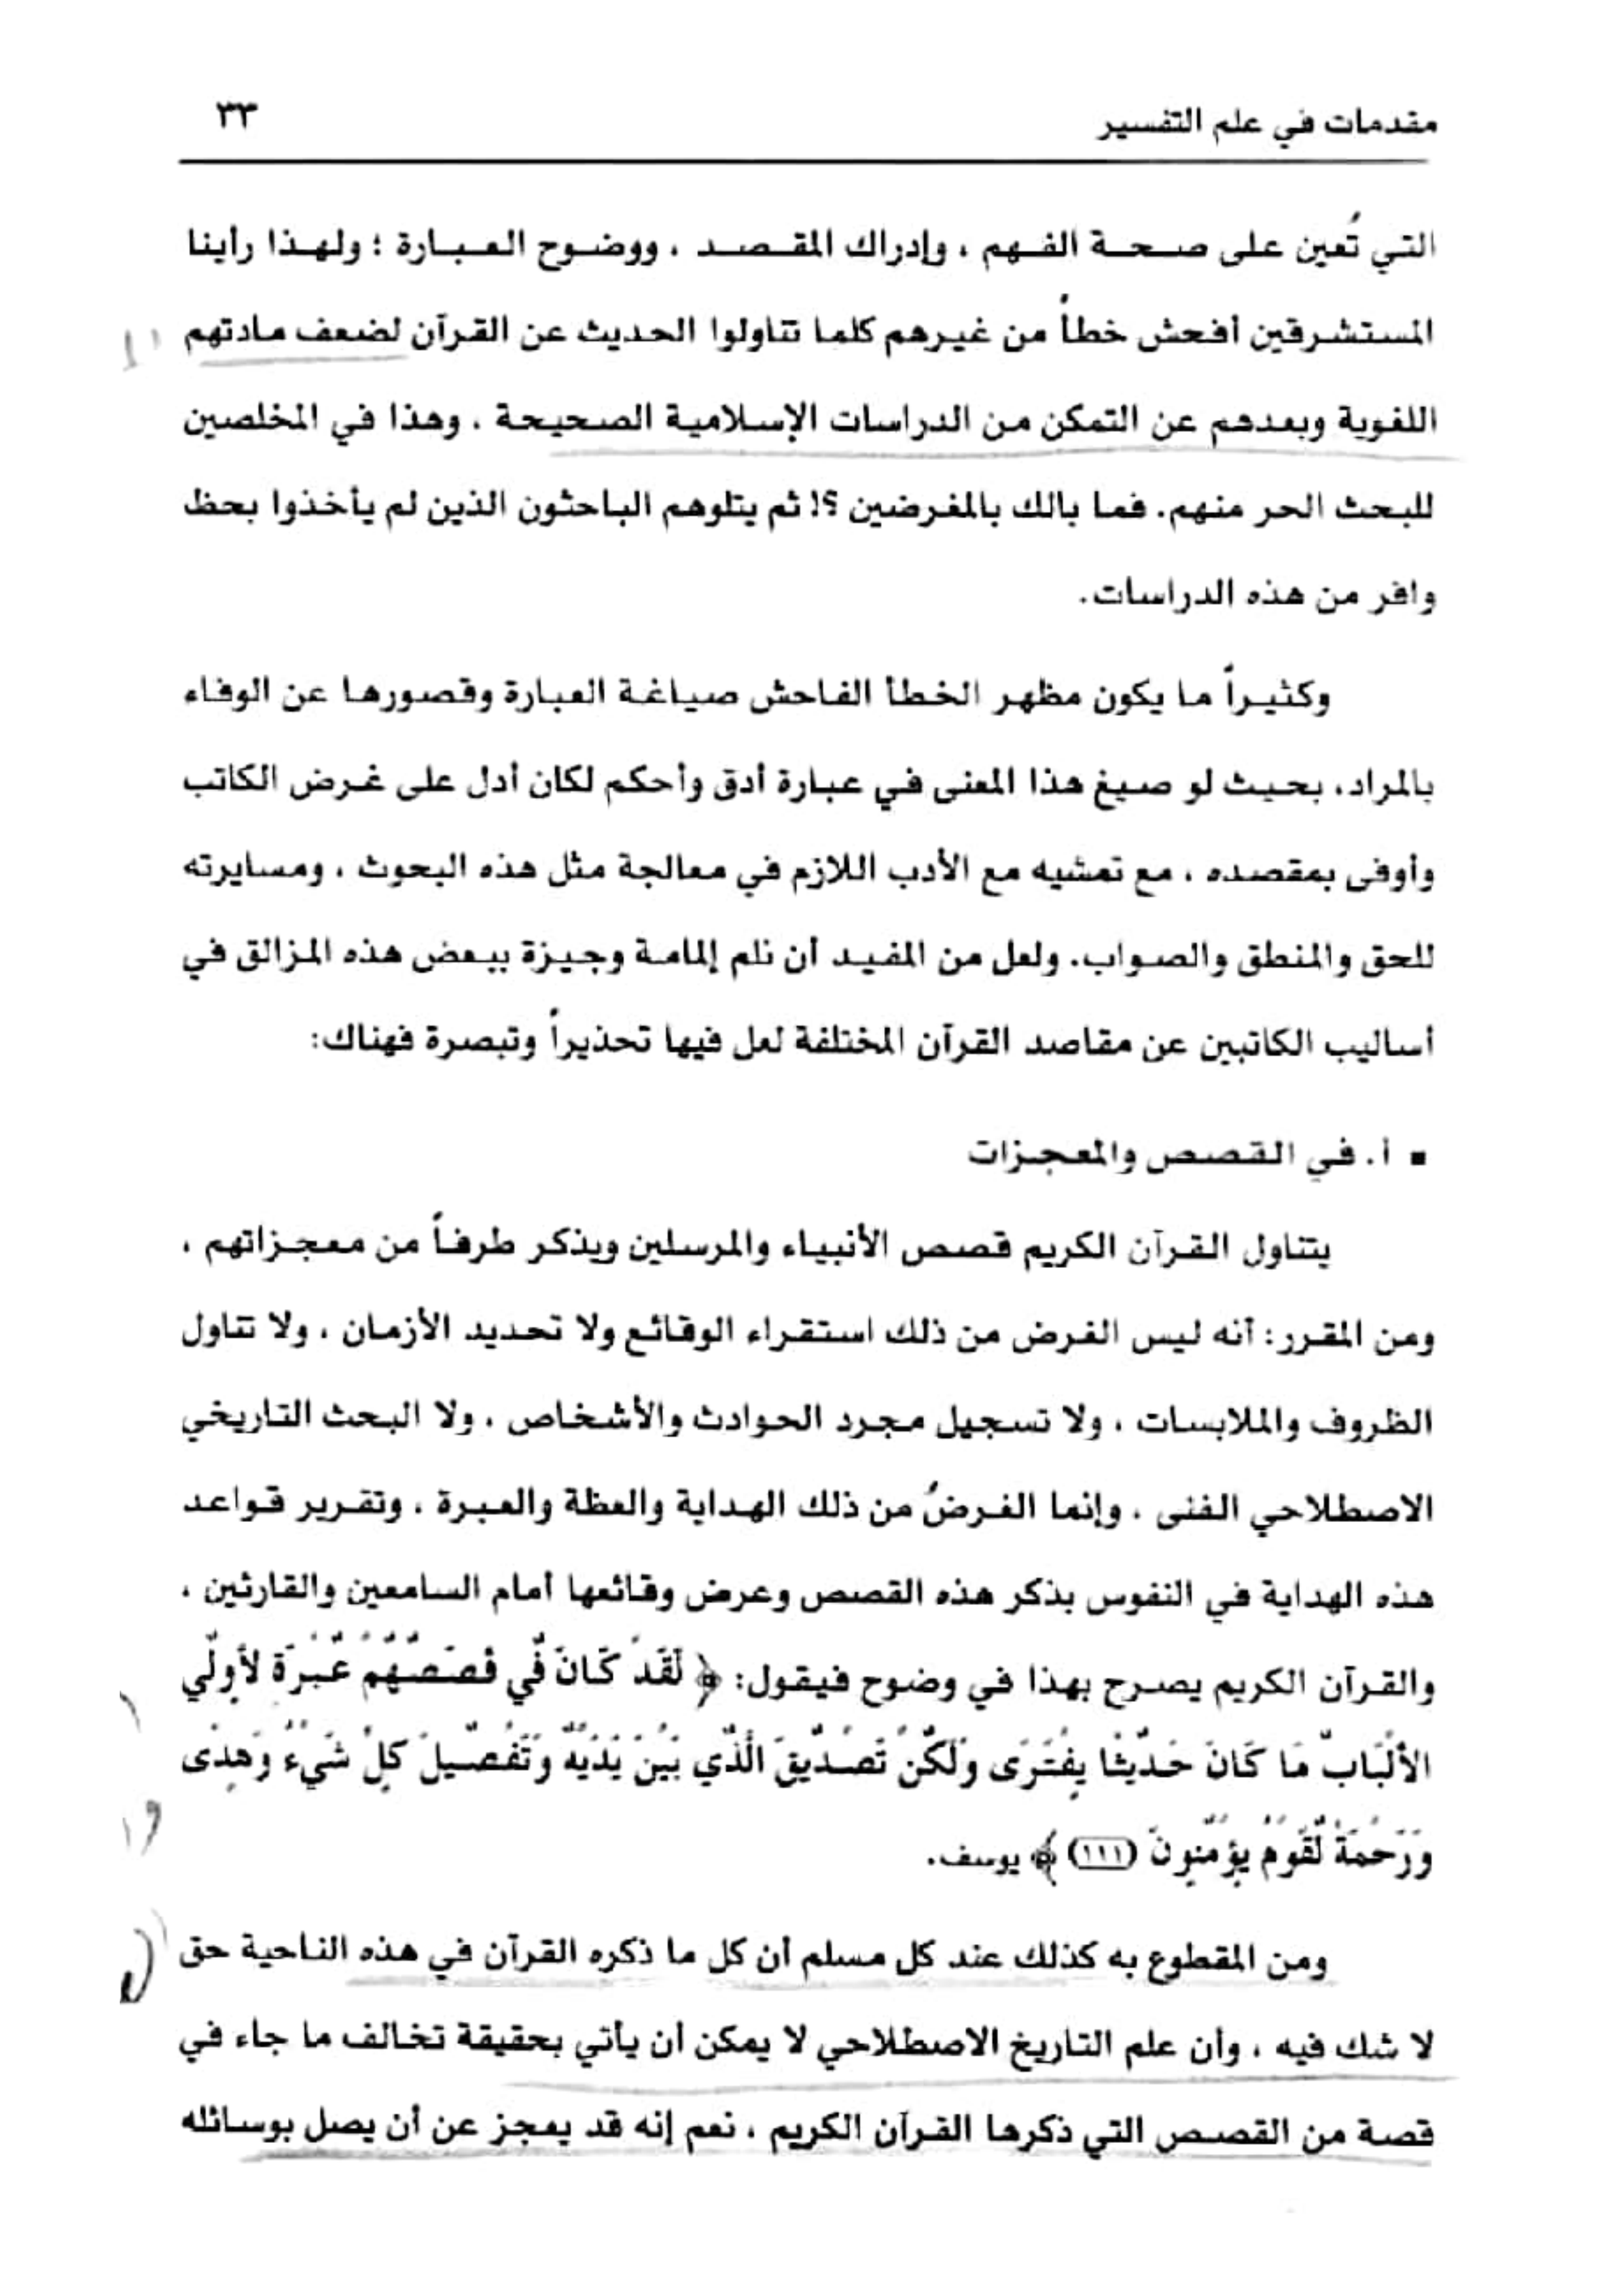 مقدمات في علم التفسير ٣٣
التي تُعين على صحة الفهم ، وإدراك المقصد ، ووضوح العبارة ؛ ولهذا رأينا
المستشرقين أفحش خطأً من غيرهم كلما تناولوا الحديث عن القرآن لضعف مادتهم
اللغوية وبعدهم عن التمكن من الدراسات الإسلامية الصحيحة ، وهذا في المخلصين
للبحث الحر منهم. فما بالك بالمغرضين ؟! ثم يتلوهم الباحثون الذين لم يأخذوا بحظ
وافر من هذه الدراسات.
وكثيراً ما يكون مظهر الخطأ الفاحش صياغة العبارة وقصورها عن الوفاء
بالمراد، بحيث لو صيغ هذا المعنى في عبارة أدق وأحكم لكان أدل على غرض الكاتب
وأوفى بمقصده ، مع تمشيه مع الأدب اللازم في معالجة مثل هذه البحوث ، ومسايرته
للحق والمنطق والصواب. ولعل من المفيد أن نلم إلمامة وجيزة ببعض هذه المزالق في
أساليب الكاتبين عن مقاصد القرآن المختلفة لعل فيها تحذيراً وتبصرة فهناك:
▪ أ. في القصص والمعجزات
يتناول القرآن الكريم قصص الأنبياء والمرسلين ويذكر طرفاً من معجزاتهم ،
ومن المقرر: أنه ليس الغرض من ذلك استقراء الوقائع ولا تحديد الأزمان ، ولا تناول
الظروف والملابسات ، ولا تسجيل مجرد الحوادث والأشخاص ، ولا البحث التاريخي
الاصطلاحي الفنى ، وإنما الغرضُ من ذلك الهداية والعظة والعبرة ، وتقرير قواعد
هذه الهداية في النفوس بذكر هذه القصص وعرض وقائعها أمام السامعين والقارئين ،
والقرآن الكريم يصرح بهذا في وضوح فيقول: ﴿ لَقَدْ كَانَ فِي قَصَصِهِمْ عِبْرَةٌ لِأُولِي
الأَلْبَابِ مَا كَانَ حَدِيثًا يُفْتَرَى وَلَكِنْ تَصْدِيقَ الَّذِي بَيْنَ يَدَيْهِ وَتَفْصِيلَ كُلِّ شَيْءٍ وَهُدًى
وَرَحْمَةً لِقَوْمٍ يُؤْمِنُونَ (١١١) ﴾ يوسف.
ومن المقطوع به كذلك عند كل مسلم أن كل ما ذكره القرآن في هذه الناحية حق
لا شك فيه ، وأن علم التاريخ الاصطلاحي لا يمكن أن يأتي بحقيقة تخالف ما جاء في
قصة من القصص التي ذكرها القرآن الكريم ، نعم إنه قد يعجز عن أن يصل بوسائله